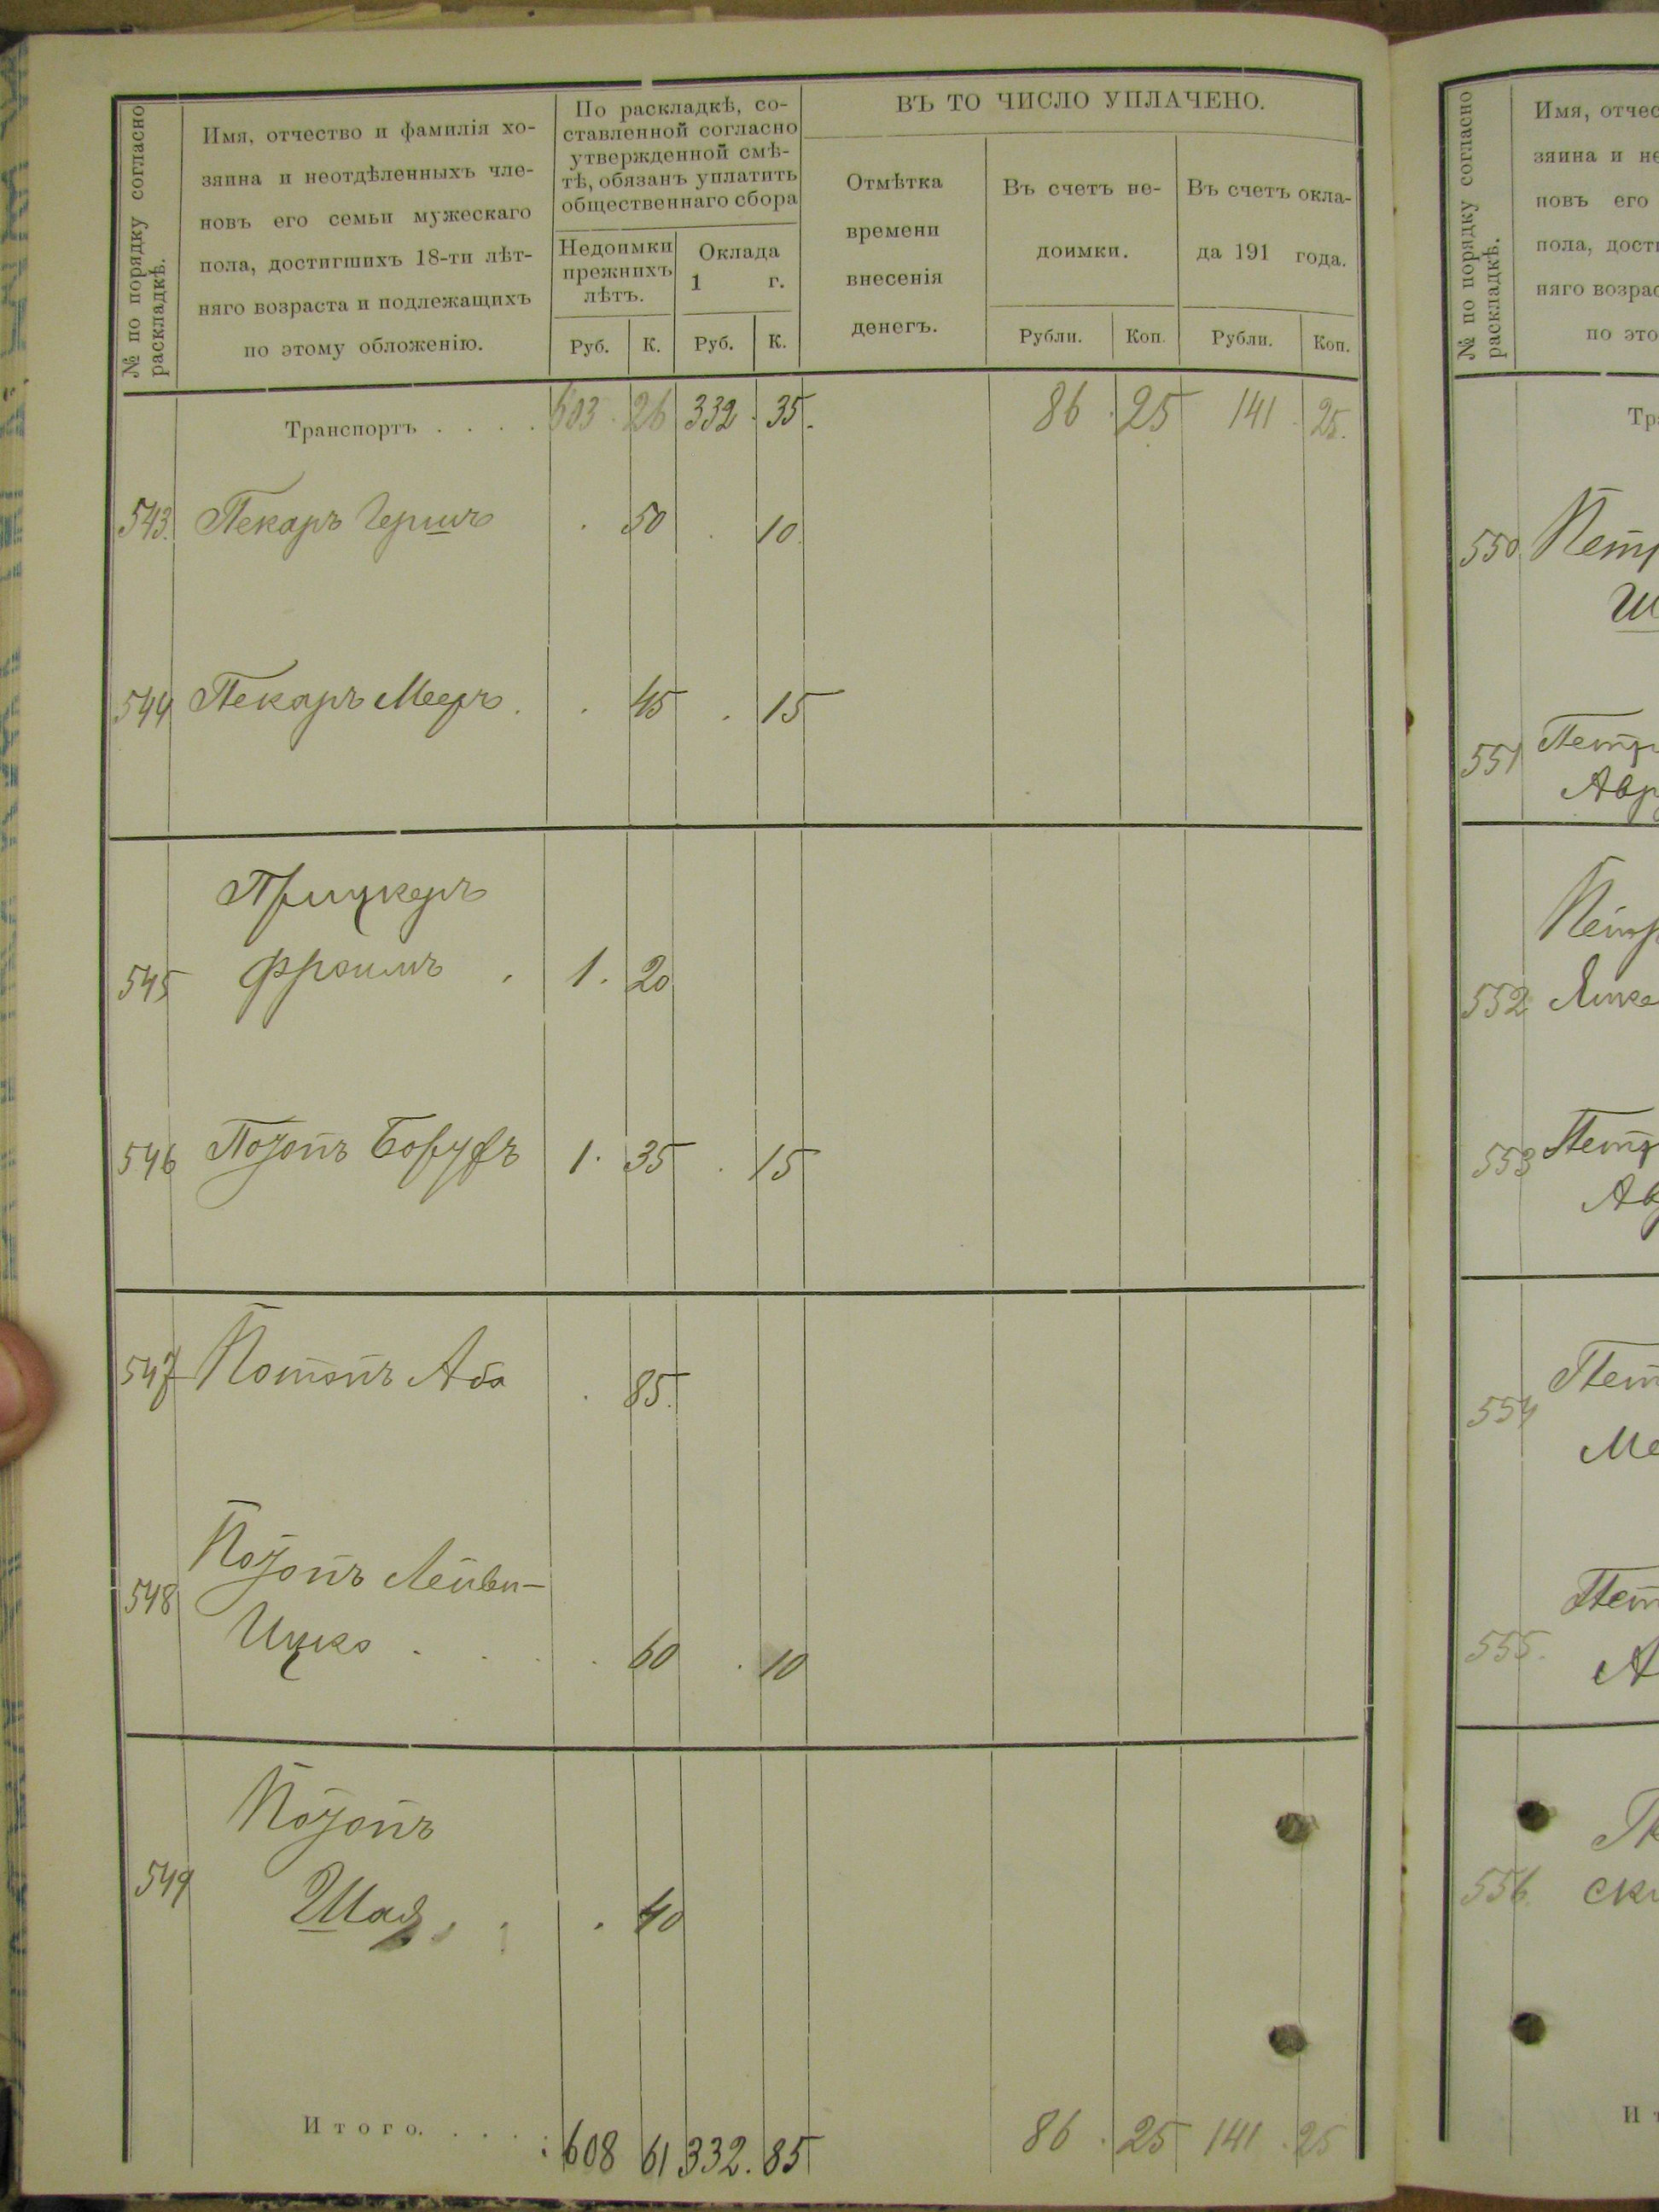 № по порядку согласно
раскладкѣ.
Имя, отчество и фамилія хо-
зяина и неотдѣленныхъ чле-
новъ его семьи мужескаго
пола, достигшихъ 18-ти лѣт-
няго возраста и подлежащихъ
по этому обложенію.
По раскладкѣ, со-
ставленной согласно
утвержденной смѣ-
тѣ, обязанъ уплатить
общественнаго сбора
Недоимки
прежнихъ
лѣтъ.
Оклада
1 г.
Руб. К. Руб. К.
ВЪ ТО ЧИСЛО УПЛАЧЕНО.
Отмѣтка
времени
внесенія
денегъ.
Въ счетъ не-
доимки.
Въ счетъ окла-
да 191 года.
Рубли. Коп. Рубли. Коп.
Транспортъ . . . . 603 . 26 332 . 35. 86 . 25 141 . 25.
543. Пекаръ Гершъ . 50 . 10.
544 Пекаръ Мееръ . . 45 . 15
Прицкеръ
545 Фроимъ . 1. 20
546 Потопъ Борухъ 1. 35 . 15
547 Потопъ Аба . 85.
Потопъ Лейви-
548
Ицко . . . . 60 . 10
Потопъ
549
Шая . . . 40
Итого. . . . 608 61 332. 85 86 . 25 141 . 25
№ по порядку согласно
раскладкѣ.
Имя, отчес
зяина и не
новъ его
пола, дости
няго возрас
по это
Тра
550 Петр
Ш
551 Петр
Авр
Петр
552 Янке
553 Петр
Ав
Пет
554
Ме
Пет
555.
А
556. ски
И т